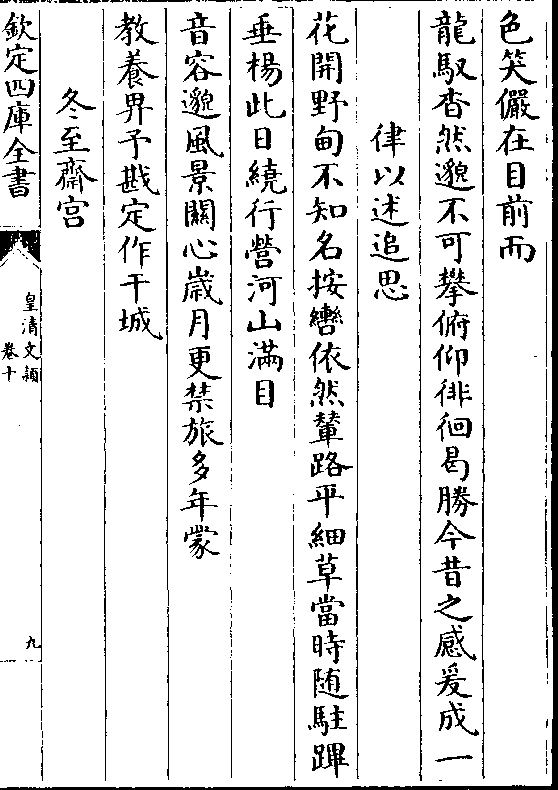 色笑儼在目前而
龍馭杳然邈不可攀俯仰徘徊曷勝今昔之感爰成一
律以述追思
花開野甸不知名按轡依然輦路平細草當時随駐蹕
垂楊此日繞行營河山滿目
音容邈風景關心歲月更禁旅多年蒙
教養畀予戡定作干城
冬至齋宫
欽定四庫全書
皇清文頴
卷十
九